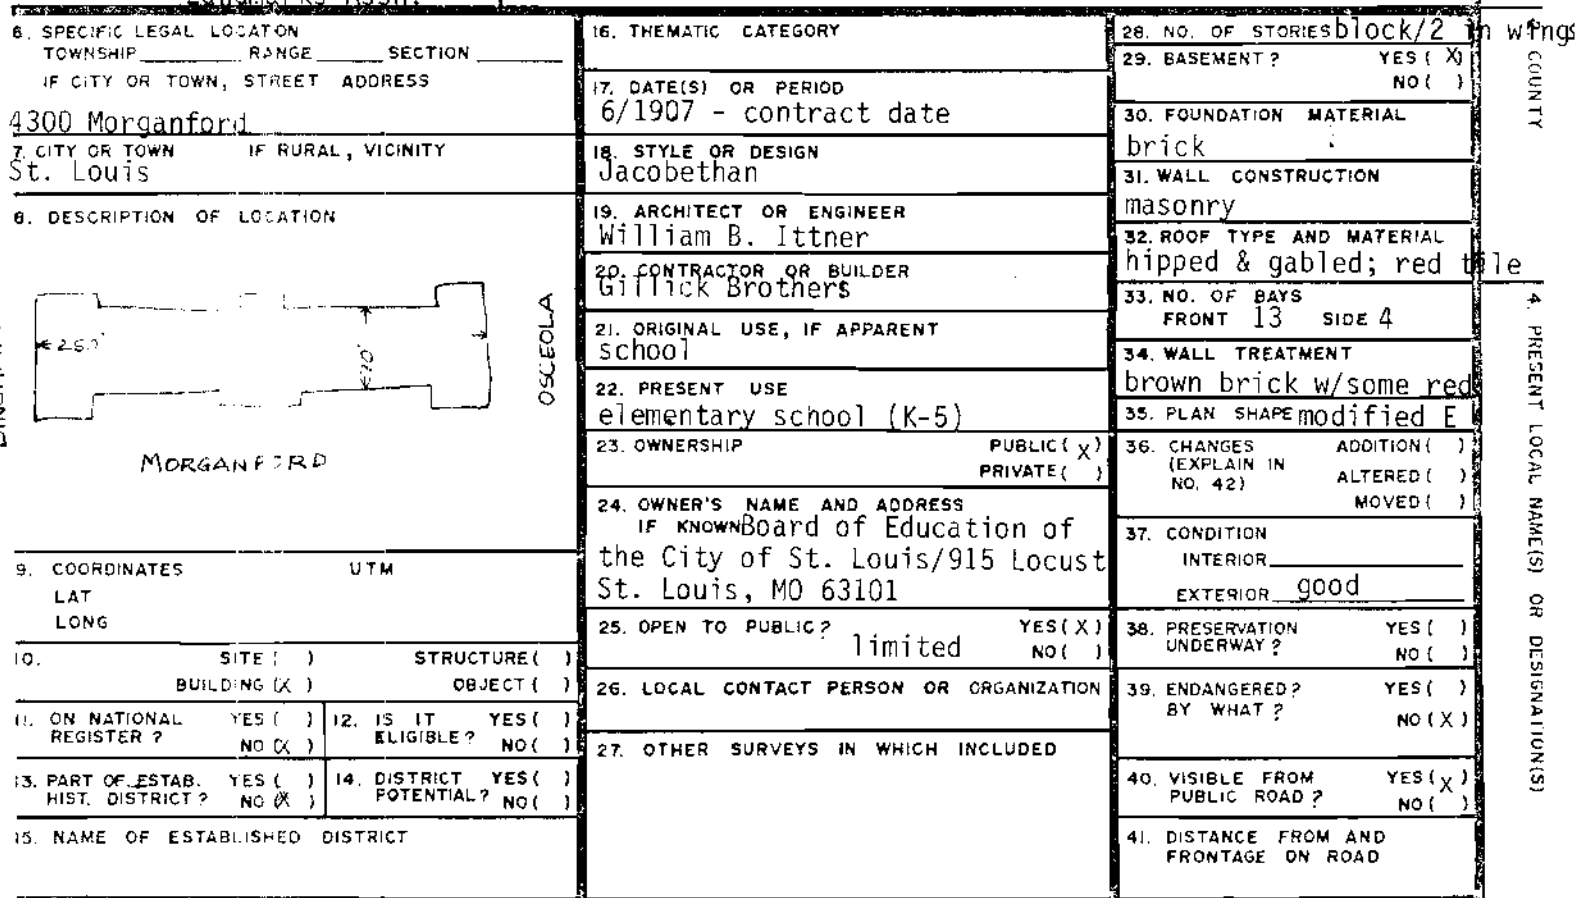 6. SPECIFIC LEGAL LOCATON
TOWNSHIP RANGE SECTION
IF CITY OR TOWN, STREET ADDRESS
4300 Morganford
7. CITY OR TOWN IF RURAL, VICINITY
St. Louis
8. DESCRIPTION OF LOCATION
OSCEOLA
MORGANFORD
9. COORDINATES UTM
LAT
LONG
10. SITE ( ) STRUCTURE ( )
BUILDING (X) OBJECT ( )
11. ON NATIONAL REGISTER ? YES ( ) NO (X)
12. IS IT ELIGIBLE? YES ( ) NO ( )
13. PART OF ESTAB. HIST. DISTRICT? YES ( ) NO (X)
14. DISTRICT POTENTIAL? YES ( ) NO ( )
15. NAME OF ESTABLISHED DISTRICT
16. THEMATIC CATEGORY
17. DATE(S) OR PERIOD
6/1907 - contract date
18. STYLE OR DESIGN
Jacobethan
19. ARCHITECT OR ENGINEER
William B. Ittner
20. CONTRACTOR OR BUILDER
Gillick Brothers
21. ORIGINAL USE, IF APPARENT
school
22. PRESENT USE
elementary school (K-5)
23. OWNERSHIP PUBLIC (X)
PRIVATE ( )
24. OWNER'S NAME AND ADDRESS
IF KNOWN Board of Education of
the City of St. Louis/915 Locust
St. Louis, MO 63101
25. OPEN TO PUBLIC? YES (X)
limited NO ( )
26. LOCAL CONTACT PERSON OR ORGANIZATION
27. OTHER SURVEYS IN WHICH INCLUDED
28. NO. OF STORIES block/2 in wings
29. BASEMENT ? YES (X)
NO ( )
30. FOUNDATION MATERIAL
brick
31. WALL CONSTRUCTION
masonry
32. ROOF TYPE AND MATERIAL
hipped & gabled; red tile
33. NO. OF BAYS
FRONT 13 SIDE 4
34. WALL TREATMENT
brown brick w/some red
35. PLAN SHAPE modified E
36. CHANGES ADDITION ( )
(EXPLAIN IN NO. 42) ALTERED ( )
MOVED ( )
37. CONDITION
INTERIOR
EXTERIOR good
38. PRESERVATION YES ( )
UNDERWAY ? NO ( )
39. ENDANGERED? YES ( )
BY WHAT ? NO (X)
40. VISIBLE FROM YES (X)
PUBLIC ROAD ? NO ( )
41. DISTANCE FROM AND
FRONTAGE ON ROAD
COUNTY
4. PRESENT LOCAL NAME(S) OR DESIGNATION(S)